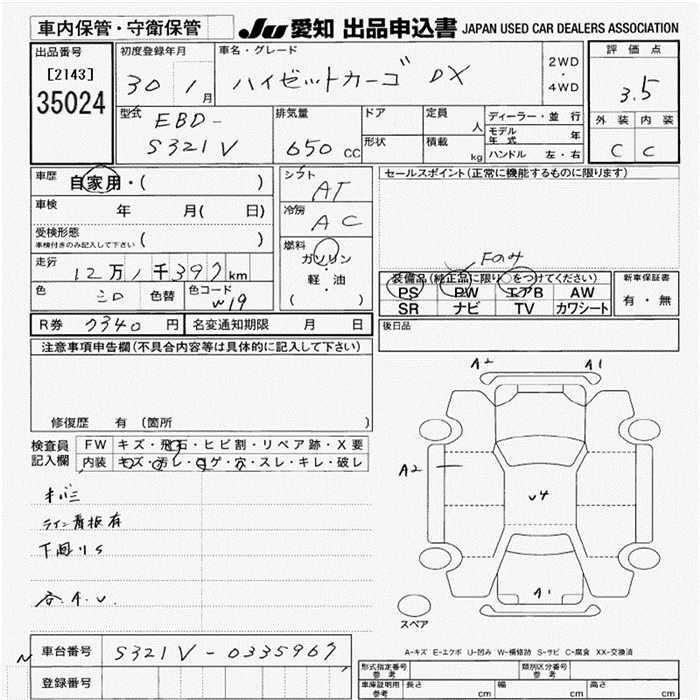 車内保管・守衛保管
JU 愛知 出品申込書 JAPAN USED CAR DEALERS ASSOCIATION
出品番号
[2143]
35024
初度登録年月
30 1月
車名・グレード
ハイゼットカーゴ DX
2WD
・
4WD
評価点
3.5
外装 内装
C C
型式
EBD-
S321V
排気量
650 cc
ドア
形状
定員 人
積載 kg
ディーラー・並行
モデル年式 年
ハンドル 左・右
車歴 自家用・( )
車検 年 月( 日)
受検形態
車検付きのみ記入して下さい ( )
走行 12万1千397km
色 シロ 色替 色コード W19
シフト AT
冷房 AC
燃料
ガソリン
・
軽・油
( )
R券 7340円 名変通知期限 月 日
セールスポイント(正常に機能するものに限ります)
Fのみ
装備品(純正品に限り○をつけてください)
PS PW エアB AW
SR ナビ TV カワシート
新車保証書
有・無
後日品
注意事項申告欄(不具合内容等は具体的に記入して下さい)
修復歴 有 (箇所 )
検査員記入欄
FW キズ・飛石・ヒビ割・リペア跡・X要
内装 キズ・汚レ・コゲ・穴・スレ・キレ・破レ
ライン看板有
下回りS
A2 A1
A2
U4
A1
スペア
A-キズ E-エクボ U-凹み W-補修跡 S-サビ C-腐食 XX-交換済
車台番号 S321V-0335967
登録番号
型式指定番号
参考
類別区分番号
参考
車庫証明用
参考
長さ cm 幅 cm 高さ cm